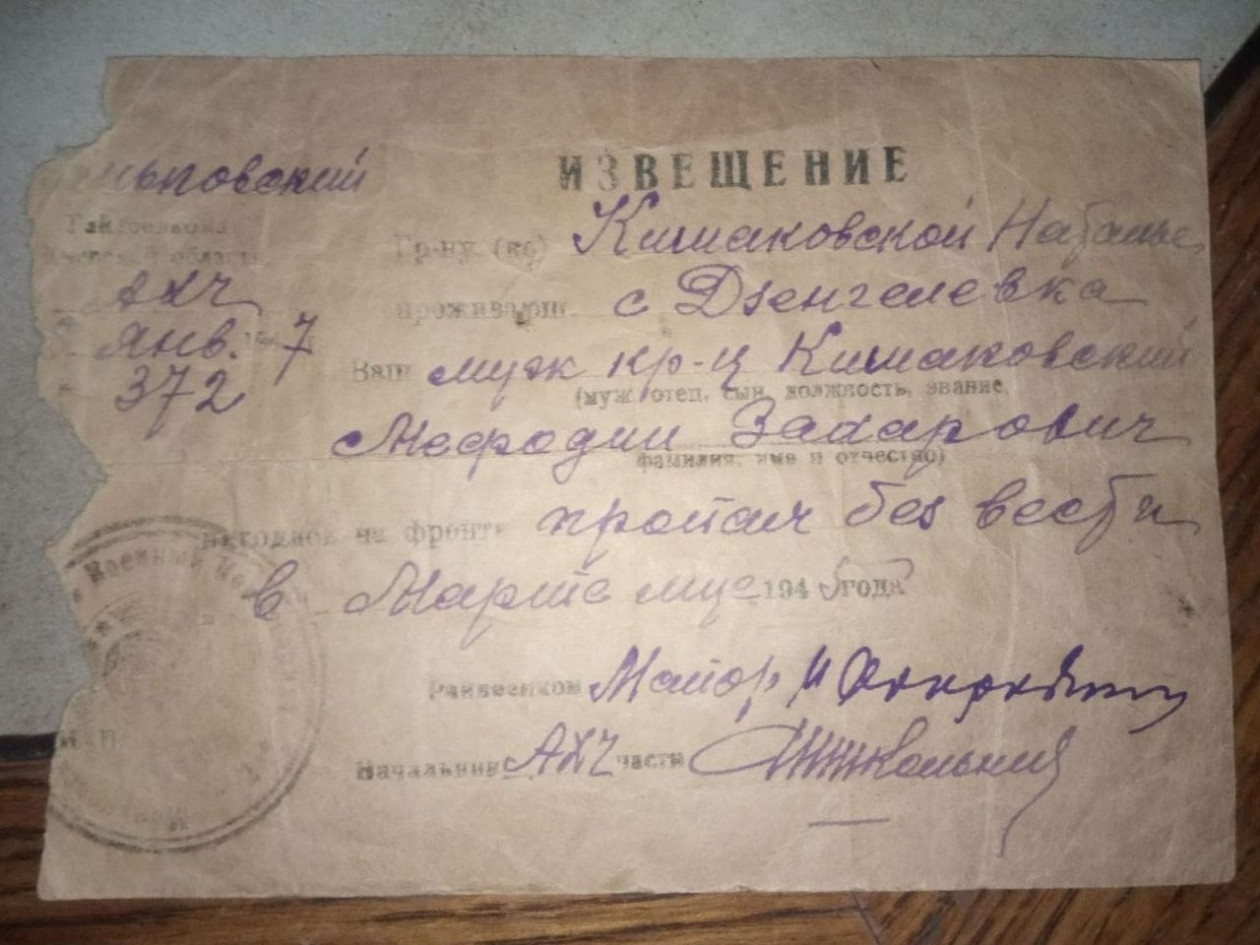 ИЗВЕЩЕНИЕ
ньковский
Райвоенкомат
области
АХЧ
янв. 194 7
372
Гр-ну (ке) Кишаковской Наталье
проживающ. с Дзенгелевка
Ваш муж кр-ц Кишаковский
(муж, отец, сын, должность, звание,
Мефодий Захарович
фамилия, имя и отчество)
находясь на фронте пропал без вести
в Марте м-це 194 5 года
Райвоенком Майор
Начальник АХЧ части Школьник
Военный